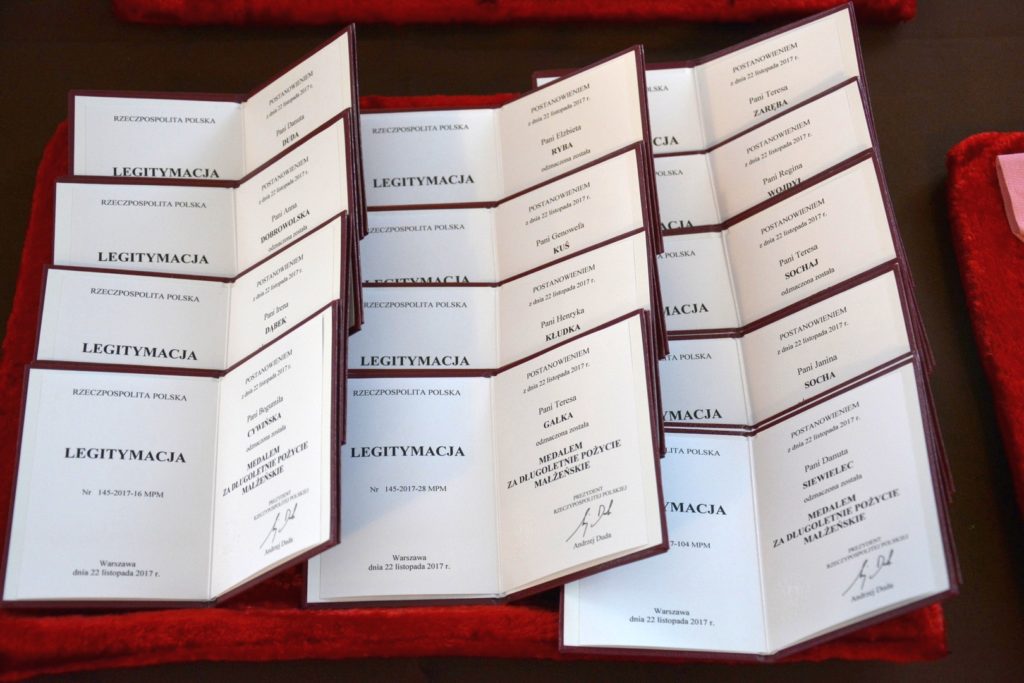 RZECZPOSPOLITA POLSKA
LEGITYMACJA
POSTANOWIENIEM
z dnia 22 listopada 2017 r.
Pani Danuta
DUDA
RZECZPOSPOLITA POLSKA
LEGITYMACJA
POSTANOWIENIEM
z dnia 22 listopada 2017 r.
Pani Anna
DOBROWOLSKA
odznaczona została
RZECZPOSPOLITA POLSKA
LEGITYMACJA
POSTANOWIENIEM
z dnia 22 listopada 2017 r.
Pani Irena
DĄBEK
RZECZPOSPOLITA POLSKA
LEGITYMACJA
Nr 145-2017-16 MPM
Warszawa
dnia 22 listopada 2017 r.
POSTANOWIENIEM
z dnia 22 listopada 2017 r.
Pani Bogumiła
CYWIŃSKA
odznaczona została
MEDALEM
ZA DŁUGOLETNIE POŻYCIE
MAŁŻEŃSKIE
PREZYDENT
RZECZYPOSPOLITEJ POLSKIEJ
Andrzej Duda
RZECZPOSPOLITA POLSKA
LEGITYMACJA
POSTANOWIENIEM
z dnia 22 listopada 2017 r.
Pani Elżbieta
RYBA
odznaczona została
RZECZPOSPOLITA POLSKA
LEGITYMACJA
POSTANOWIENIEM
z dnia 22 listopada 2017 r.
Pani Genowefa
KUŚ
RZECZPOSPOLITA POLSKA
LEGITYMACJA
POSTANOWIENIEM
z dnia 22 listopada 2017 r.
Pani Henryka
KŁUDKA
RZECZPOSPOLITA POLSKA
LEGITYMACJA
Nr 145-2017-28 MPM
Warszawa
dnia 22 listopada 2017 r.
POSTANOWIENIEM
z dnia 22 listopada 2017 r.
Pani Teresa
GAŁKA
odznaczona została
MEDALEM
ZA DŁUGOLETNIE POŻYCIE
MAŁŻEŃSKIE
PREZYDENT
RZECZYPOSPOLITEJ POLSKIEJ
Andrzej Duda
LSKA
CJA
POSTANOWIENIEM
z dnia 22 listopada 2017 r.
Pani Teresa
ZARĘBA
POLSKA
MACJA
POSTANOWIENIEM
z dnia 22 listopada 2017 r.
Pani Regina
POLSKA
MACJA
POSTANOWIENIEM
z dnia 22 listopada 2017 r.
Pani Teresa
SOCHAJ
odznaczona została
POLSKA
YMACJA
POSTANOWIENIEM
z dnia 22 listopada 2017 r.
Pani Janina
SOCHA
POLSKA
YMACJA
7-104 MPM
Warszawa
dnia 22 listopada 2017 r.
POSTANOWIENIEM
z dnia 22 listopada 2017 r.
Pani Danuta
SIEWIELEC
odznaczona została
MEDALEM
ZA DŁUGOLETNIE POŻYCIE
MAŁŻEŃSKIE
PREZYDENT
RZECZYPOSPOLITEJ POLSKIEJ
Andrzej Duda